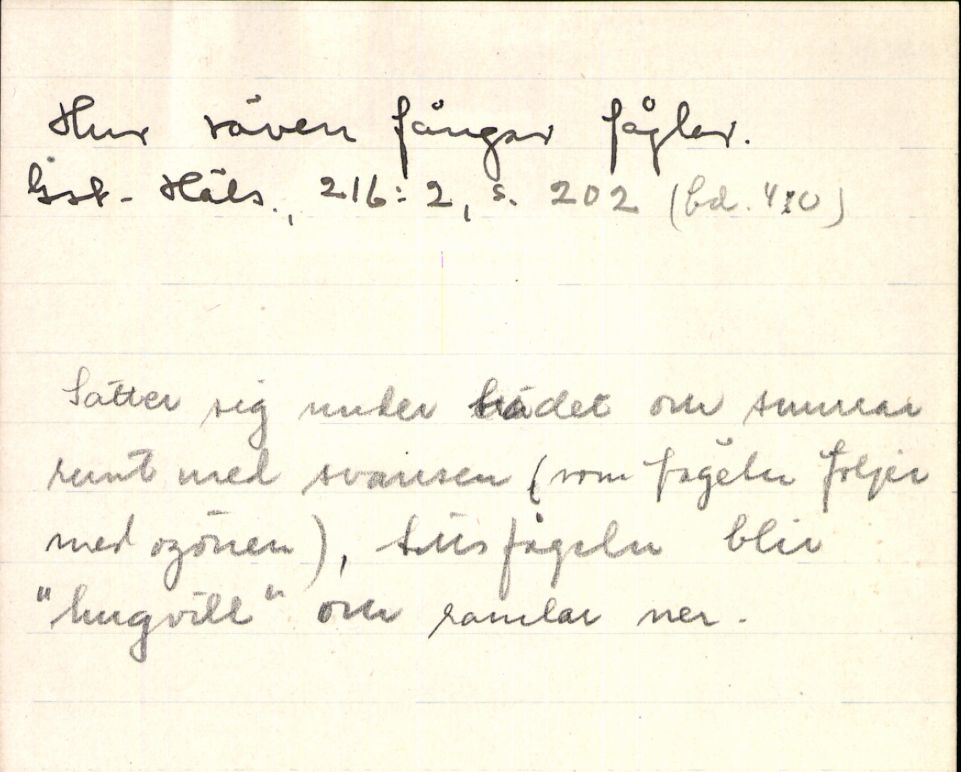 Hur räven fångar fåglar.
Gst - Häls., 216:2, s. 202 (bd. 480)
Sätter sig under trädet om snurrar
runt med svansen (som fågeln följer
med ögonen), tills fågeln blir
"hugvill" om ramlar ner.